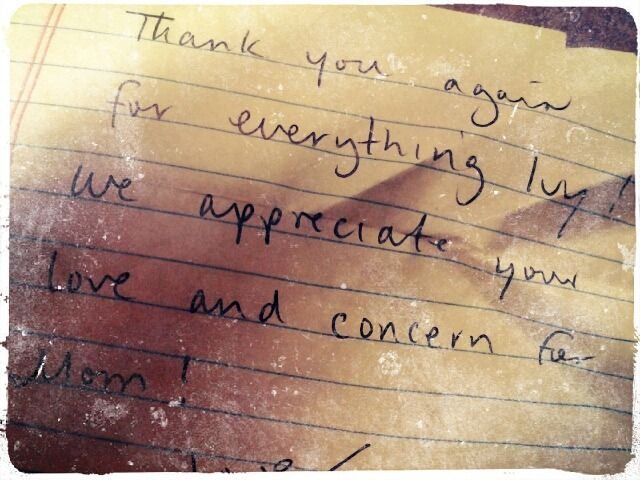 Thank you again
for everything Ivy!
We appreciate your
love and concern for
Mom!